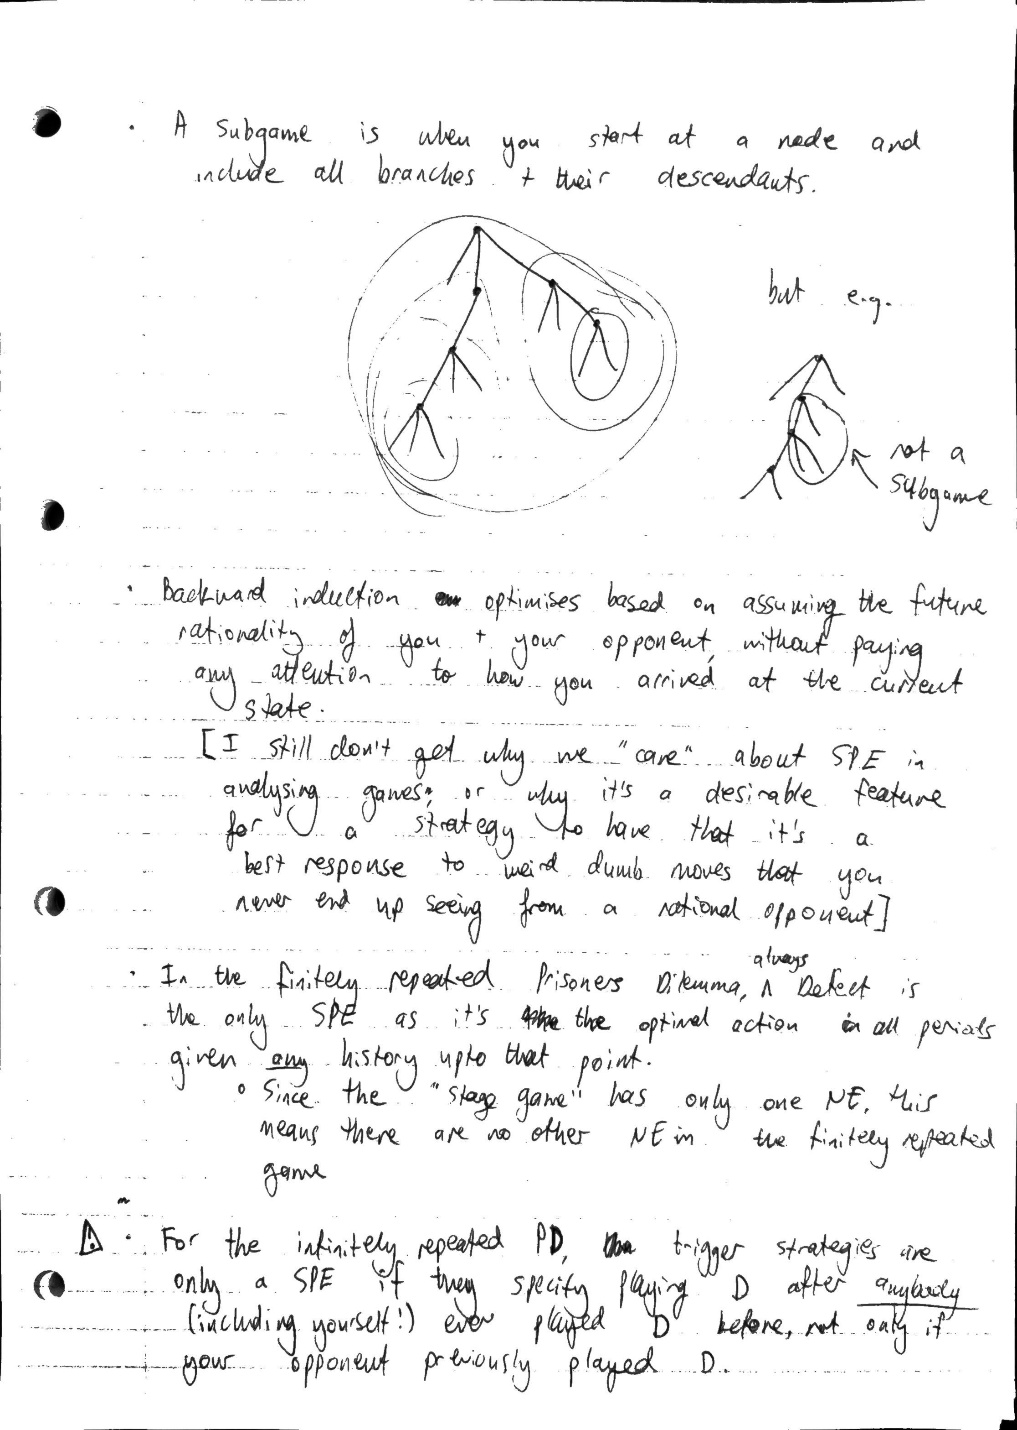 · A subgame is when you start at a node and
include all branches + their descendants.
but e.g.
not a
subgame
· Backward induction optimises based on assuming the future
rationality of you + your opponent, without paying
any attention to how you arrived at the current
state.
[I still don't get why we "care" about SPE in
analysing games, or why it's a desirable feature
for a strategy to have that it's a
best response to weird dumb moves that you
never end up seeing from a rational opponent]
· In the finitely repeated Prisoners Dilemma, always Defect is
the only SPE as it's the optimal action in all periods
given any history upto that point.
◦ Since the "stage game" has only one NE, this
means there are no other NE in the finitely repeated
game
⚠ · For the infinitely repeated PD, trigger strategies are
only a SPE if they specify playing D after anybody
(including yourself!) ever played D before, not only if
your opponent previously played D.